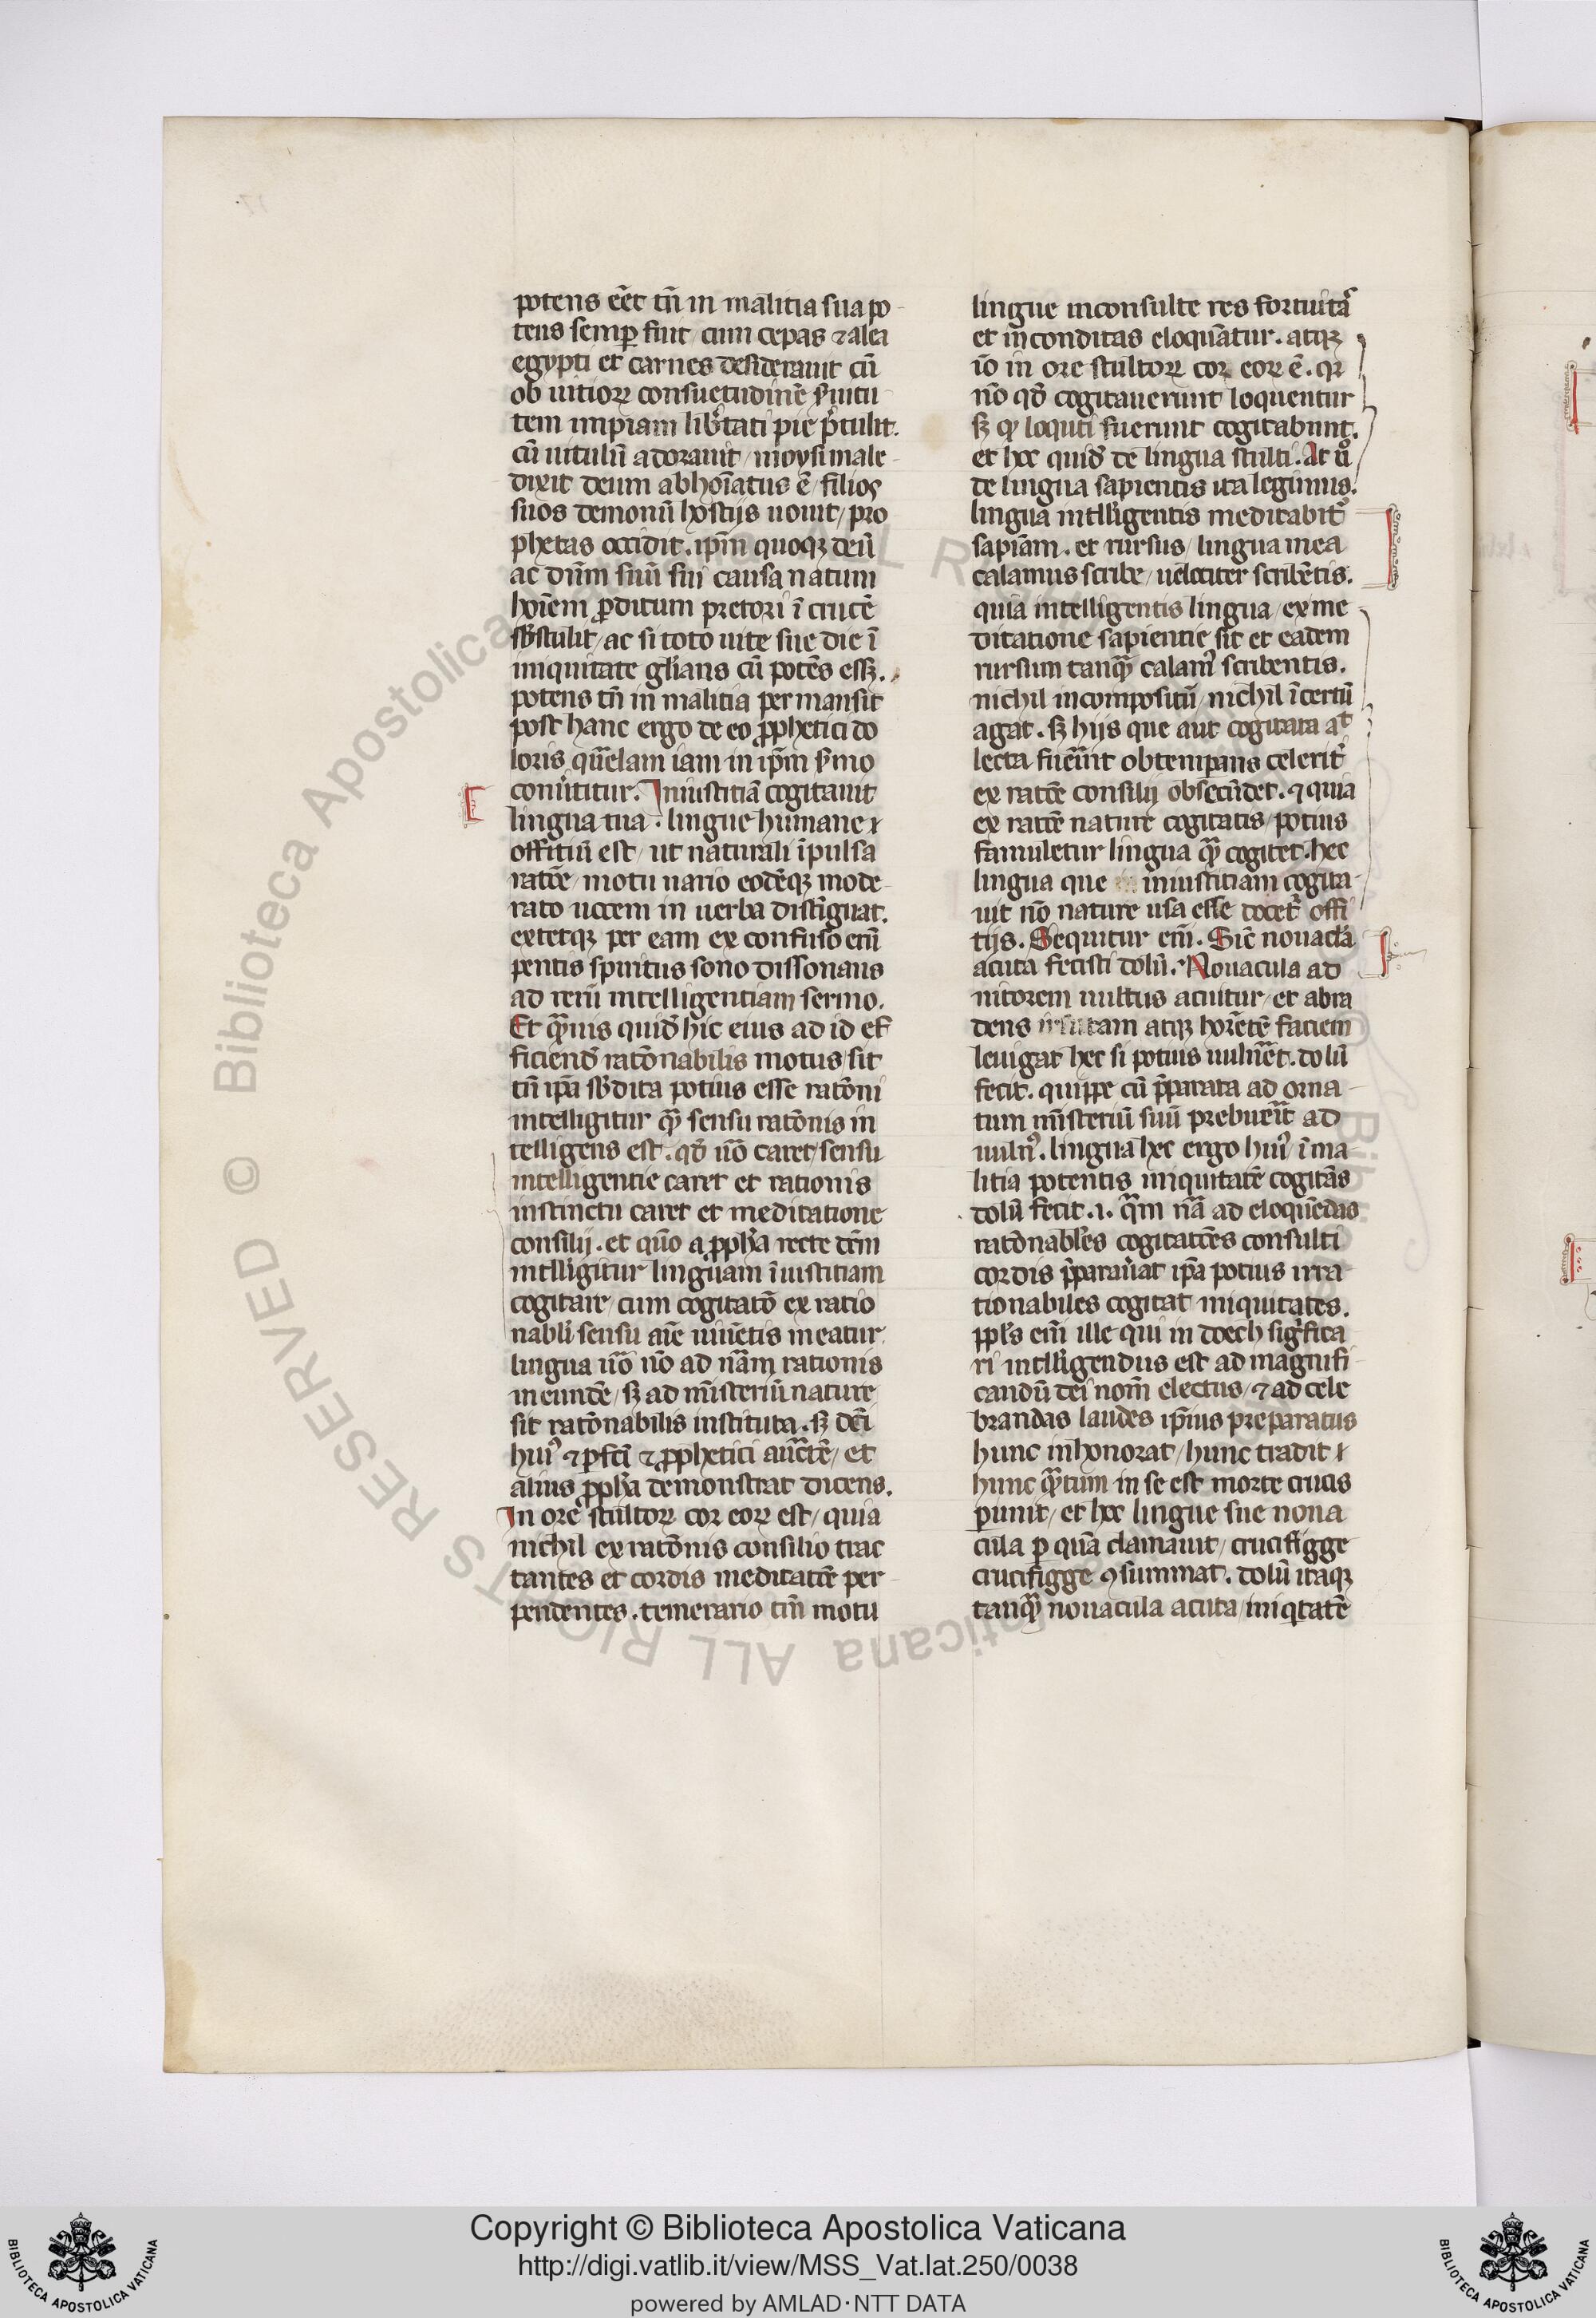 potens eēt tn̄ in malitia sua po-
tens semp̱ fuit / cum cepas ⁊ alea
egypti et carnes desiderauit cū
ob uitioꝝ consuetudinē s̾uitu
tem impiam lib̾tati pie p̾tulit.
cū uitulū adorauit / moysi male-
dixit deum abhoīatus ē / filios
suos demonū hostijs uouit / pro
phetas occidit . ip̄m quoqꝫ deū
ac dn̄m suū sui causa natum
hoīem ꝓditum pretori ī crucē
sb̾stulit / ac si toto uite sue die ī
iniquitate gl̾ians cū potēs essꝫ.
potens tn̄ in malitia permansit
post hanc ergo de eo ꝓphetici do
loris quēlam iam in ip̄m s̾mo
conu̾titur. Iniustitiā cogitauit
lingua tua . lingue humane
offitiū est / ut naturali īpulsa
ratōe / motu uario eodēqꝫ mode-
rato uocem in uerba distīguat.
extetqꝫ per eam ex confuso erū
pentis spiritus sono dissonans
ad rerū intelligentiam sermo.
Et quāuis quid̾ hic eius ad id ef
ficiend̾ ratōnabilis motus / sit
tn̄ ip̄a sb̾dita potius esse ratōni
intelligitur qȝ̄ sensu ratōnis in
telligens est . qd̾ uō caret / sensu
intelligentie caret et rationis
instinctu caret et meditatione
consilij . et quō a ꝓph̾a recte dc̄m
intll̾igitur linguam īiustitiam
cogitare / cum cogitatō ex ratio
nabli̾ sensu aīe uiuētis meatur
lingua uō nō ad nām rationis
ineunde / sꝫ ad mīsteriū nature
sit ratōnabilis instituta . sꝫ dc̄i
hui᾿ ⁊ ꝑfc̄i ⁊ ꝓphetici auctē / et
alius ꝓph̾a demonstrat dicens.
In ore stultoꝝ cor eoꝝ est / quia
nichil ex ratōnis consilio trac
tantes et cordis meditatōe per-
pendentes . temerario tm̄ motu
lingue inconsulte res fortuitas
et inconditas eloquātur . atqꝫ
iō in ore stultoꝝ cor eoꝝ ē . qꝛ
nō qd̾ cogitauerunt loquentur
sꝫ qȝ loquti fuerunt cogitabunt.
et hec quid̾ de lingua stulti . At ū̊
de lingua sapientis ita legimus.
lingua intll̾igentis meditabit᾿
sapiām . et rursus / lingua mea
calamus scribe / uelociter scribētis.
quia intelligentis lingua / ex me
ditatione sapientie sit et eadem
rursum tanqȝ̄ calam᾿ scribentis.
nichil incompositū / nichil īcertū
agat . sꝫ hijs que aut cogitata at
lecta fuer̄it obtemꝑans celerit᾿
ex ratōe consilij obsecūdet . ⁊ quia
ex ratōe nature cogitatis / potius
famuletur lingua qȝ̄ cogitet . hec
lingua que iniustitiam cogita-
uit nō nature usa esse docet᾿ offi
tijs . Sequitur em̄ . Sic̄ nouacl̾a
acuta fecisti dolū . Nouacula ad
nitorem uultus acuitur / et abra
dens irsutam atqꝫ horētē faciem
leuigat hec si potius uuln̾et . dolū
fecit . quippe cū p̾parata ad orna-
tum mīsteriū suū prebuēīt ad
uuln᾿ . lingua hec ergo hui᾿ ī ma-
litia potentis iniquitatē cogitās
dolū fecit .i. qȝ̄m nā ad eloquēdas
ratōnabl̾es cogitatōes consulti
cordis p̾parau̾at ip̄a potius irra
tionabiles cogitat iniquitates.
ppl̾s em̄ ille qui in doech sig̾fica
ri intll̾igendus est ad magnifi-
candū dei nom̄ electus / ⁊ ad cele
brandas laudes ip̄ius preparatus
hunc inhonorat / hunc tradit
hunc quātum in se est morte crucis
punit / et hec lingue sue noua
cula ꝑ quā clamauit / crucifigge
crucifigge ꝯsummat . dolū itaqꝫ
tanqȝ̄ nouacula acuta / iniqtatē
Copyright © Biblioteca Apostolica Vaticana
http://digi.vatlib.it/view/MSS_Vat.lat.250/0038
powered by AMLAD·NTT DATA